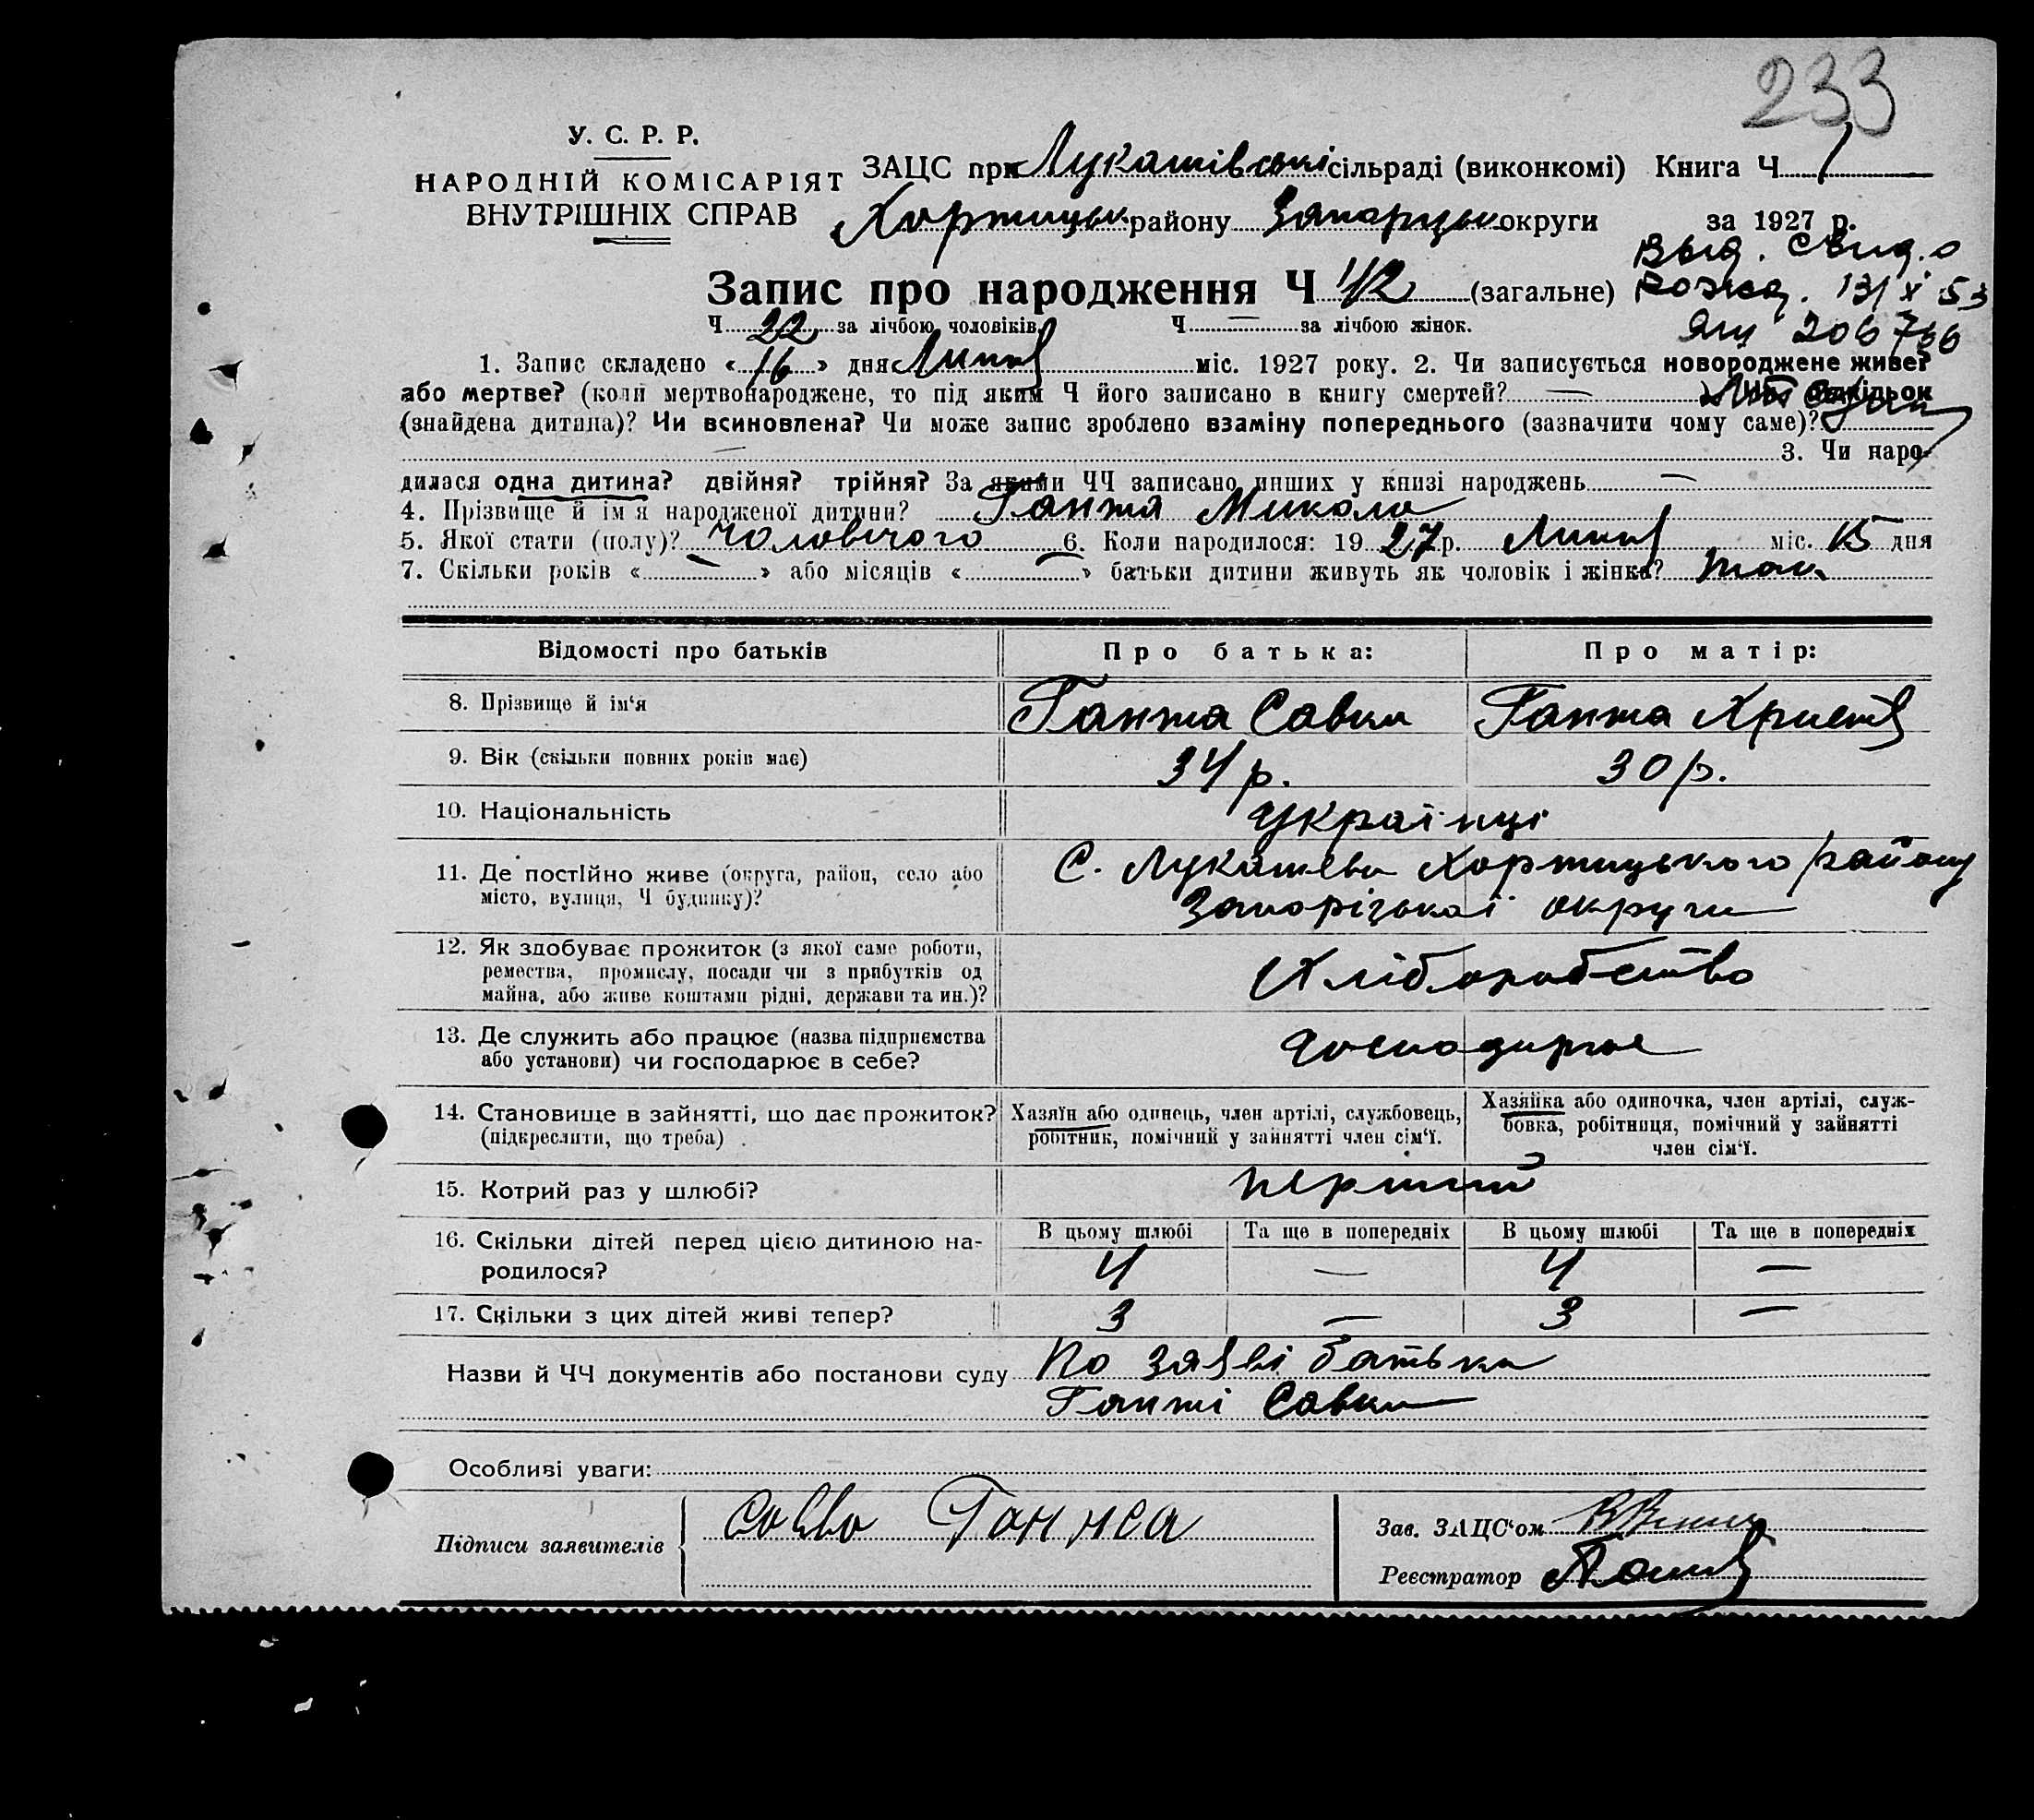 233
У. С. Р. Р.
НАРОДНІЙ КОМІСАРІЯТ
ВНУТРІШНІХ СПРАВ
ЗАЦС при Лукашівській сільраді (виконкомі) Книга Ч 1
Хортицьк. району Запорізьк округи за 1927 р.
Выд. свид. о
Запис про народження Ч 42 (загальне) рожд. 13/X 53
Ч 22 за лічбою чоловіків. Ч — за лічбою жінок. 206766
1. Запис складено «16» дня Липня міс. 1927 року. 2. Чи записується новороджене живе?
або мертве? (коли мертвонароджене, то під яким Ч його записано в книгу смертей? — підкільок
(знайдена дитина)? Чи всиновлена? Чи може запис зроблено взаміну попереднього (зазначити чому саме)?
— 3. Чи наро-
дилася одна дитина? двійня? трійня? За якими ЧЧ записано инших у книзі народжень —
4. Прізвище й ім'я народженої дитини? Ганжа Микола
5. Якої стати (полу)? Чоловічого 6. Коли народилося: 1927 р. Липня міс. 15 дня
7. Скільки років « — » або місяців « — » батьки дитини живуть як чоловік і жінка?
Відомості про батьків Про батька: Про матір:
8. Прізвище й ім'я Ганжа Савка Ганжа Христя
9. Вік (скільки повних років має) 34 р. 30 р.
10. Національність Українці
11. Де постійно живе (округа, район, село або С. Лукашева Хортицького району
місто, вулиця, Ч будинку)? Запорізької округи
12. Як здобуває прожиток (з якої саме роботи,
ремества, промислу, посади чи з прибутків од Хліборобство
майна, або живе коштами рідні, держави та ин.)?
13. Де служить або працює (назва підприємства господарює
або установи) чи господарює в себе?
14. Становище в зайнятті, що дає прожиток? Хазяїн або одинець, член артілі, службовець, Хазяйка або одиночка, член артілі, служ-
(підкреслити, що треба) робітник, помічний у зайнятті член сім'ї. бовка, робітниця, помічний у зайнятті
член сім'ї.
15. Котрий раз у шлюбі? перший
16. Скільки дітей перед цією дитиною на- В цьому шлюбі Та ще в попередніх В цьому шлюбі Та ще в попередніх
родилося? 4 — 4 —
17. Скільки з цих дітей живі тепер? 3 — 3 —
Назви й ЧЧ документів або постанови суду По заяві батька
Ганжі Савки
Особливі уваги:
Підписи заявителів Савво Ганжа
Зав. ЗАЦС'ом
Реєстратор